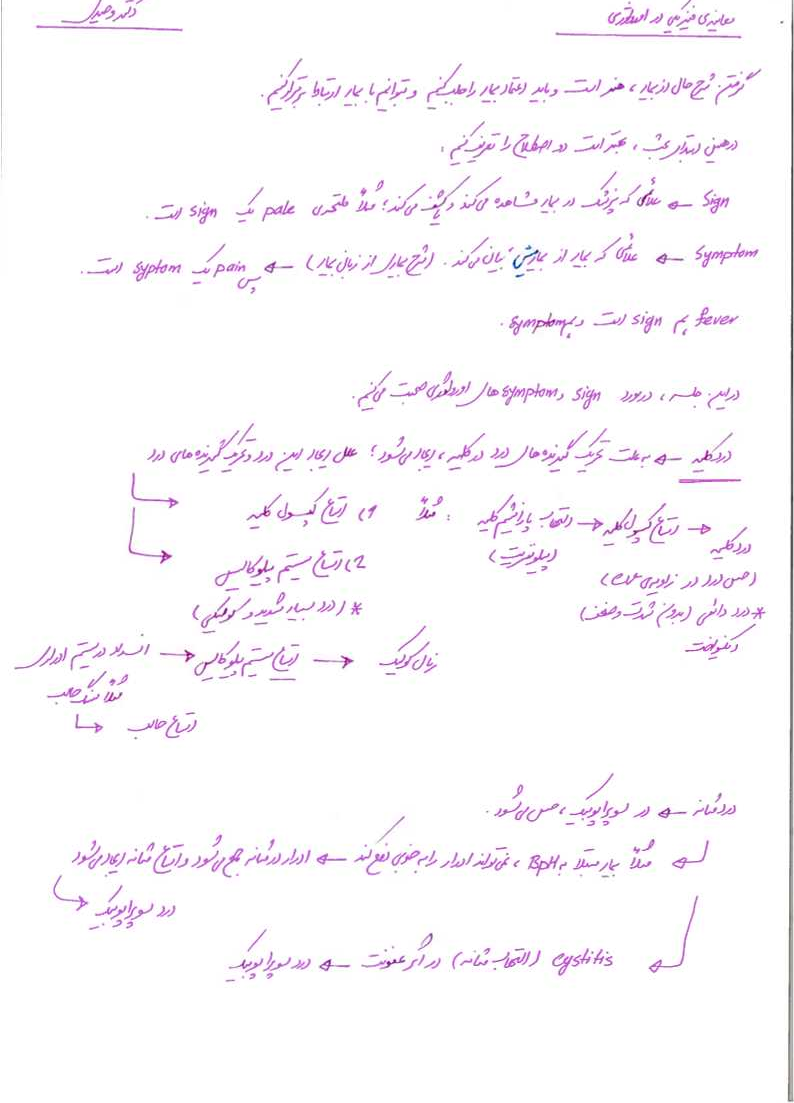 معاینه‌ی فیزیکی در اورولوژی
دکتر وحیدی
گرفتن شرح حال از بیمار، هنر است و باید اعتماد بیمار را جلب کنیم و بتوانیم با بیمار ارتباط برقرار کنیم.
در همین ابتدای بحث، بهتر است دو اصطلاح را تعریف کنیم:
Sign ← علائمی که پزشک در بیمار مشاهده می‌کند و یا کشف می‌کند؛ مثلاً ملتحمه‌ی pale یک sign است.
Symptom ← علائمی که بیمار از بیماریش بیان می‌کند. (شرح بیماری از زبان بیمار) ← پس pain یک syptom است.
fever هم sign است و هم symptom.
در این جلسه، در مورد sign و symptom های اورولوژی صحبت می‌کنیم.
درد کلیه ← به علت تحریک گیرنده‌های درد در کلیه، ایجاد می‌شود؛ علل ایجاد این درد و تحریک گیرنده‌های درد
1) اتساع کپسول کلیه مثلاً: التهاب پارانشیم کلیه → اتساع کپسول کلیه → درد کلیه
(پیلونفریت) (حس درد در زاویه‌ی CVA)
2) اتساع سیستم پیلوکالیس
* (درد بسیار شدید و کولیکی)
* درد دائمی (بدون شدت و ضعف)
و یکنواخت
انسداد در سیستم ادراری → اتساع سیستم پیلوکالیس → رنال کولیک
مثلاً سنگ حالب
اتساع حالب
درد مثانه ← در سوپراپوبیک، حس می‌شود.
مثلاً بیمار مبتلا به BPH، نمی‌تواند ادرار را به خوبی دفع کند ← ادرار در مثانه جمع می‌شود و اتساع مثانه ایجاد می‌شود
درد سوپراپوبیک
cystitis (التهاب مثانه) در اثر عفونت ← درد سوپراپوبیک